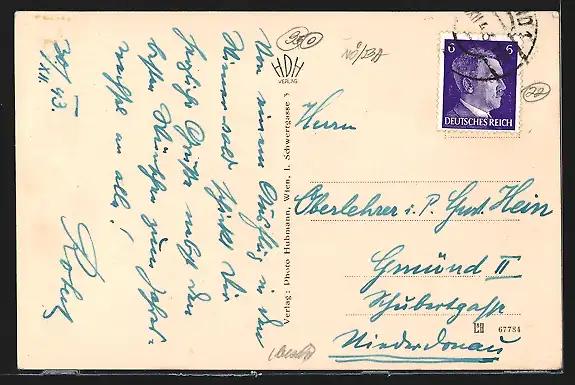 20/XII. 43.
Von einem Ausflug in den
Wienerwald schickt Dir
herzliche Grüße nebst den
besten Wünschen zum Jahres-
wechsel an alle!
Robert
Verlag: Photo Huhmann, Wien, I. Schwertgasse 3
HDH
VERLAG
6 6
DEUTSCHES REICH
22
Herrn
Oberlehrer i. P. Gust. Hein
Gmünd III
Schubertgasse
Niederdonau
67784